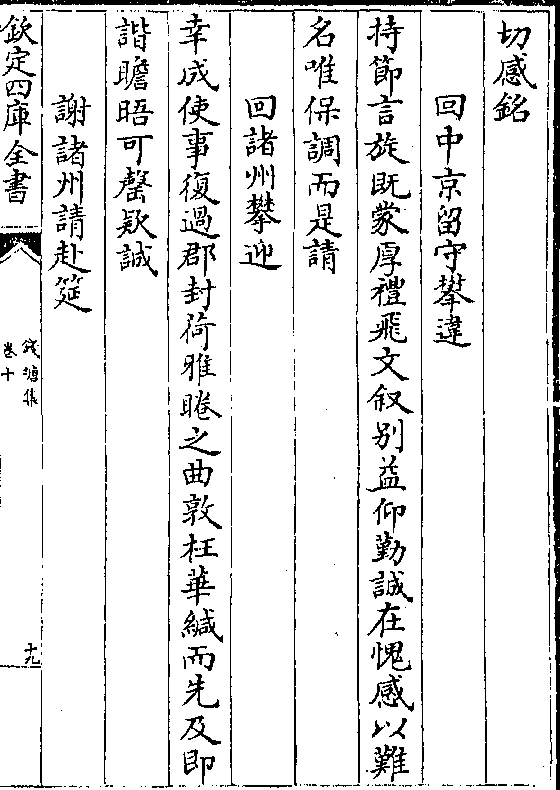 切感銘
回中京留守攀違
持節言旋既蒙厚禮飛文叙别益仰勤誠在愧感以難
名唯保調而是請
回諸州攀迎
幸成使事復過郡封荷雅睠之曲敦枉華緘而先及即
諧瞻晤可罄欵誠
謝諸州請赴筵
欽定四庫全書
錢塘集
卷十
十九